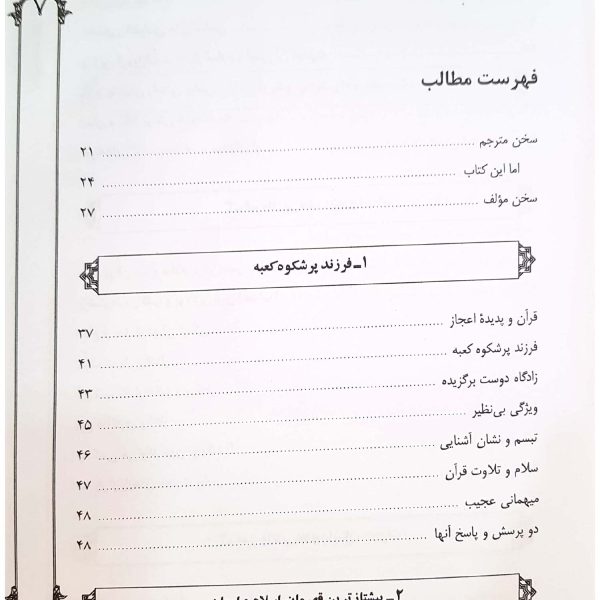 ۷
فهرست مطالب
سخن مترجم ........ ۲۱
اما این کتاب ........ ۲۴
سخن مؤلف ........ ۲۷
۱ـ فرزند پرشکوه کعبه
قرآن و پدیدهٔ اعجاز ........ ۳۷
فرزند پرشکوه کعبه ........ ۴۱
زادگاه دوست برگزیده ........ ۴۳
ویژگی بی‌نظیر ........ ۴۵
تبسم و نشان آشنایی ........ ۴۶
سلام و تلاوت قرآن ........ ۴۷
میهمانی عجیب ........ ۴۸
دو پرسش و پاسخ آنها ........ ۴۸
۲ـ پیشتازترین قهرمان اسلام